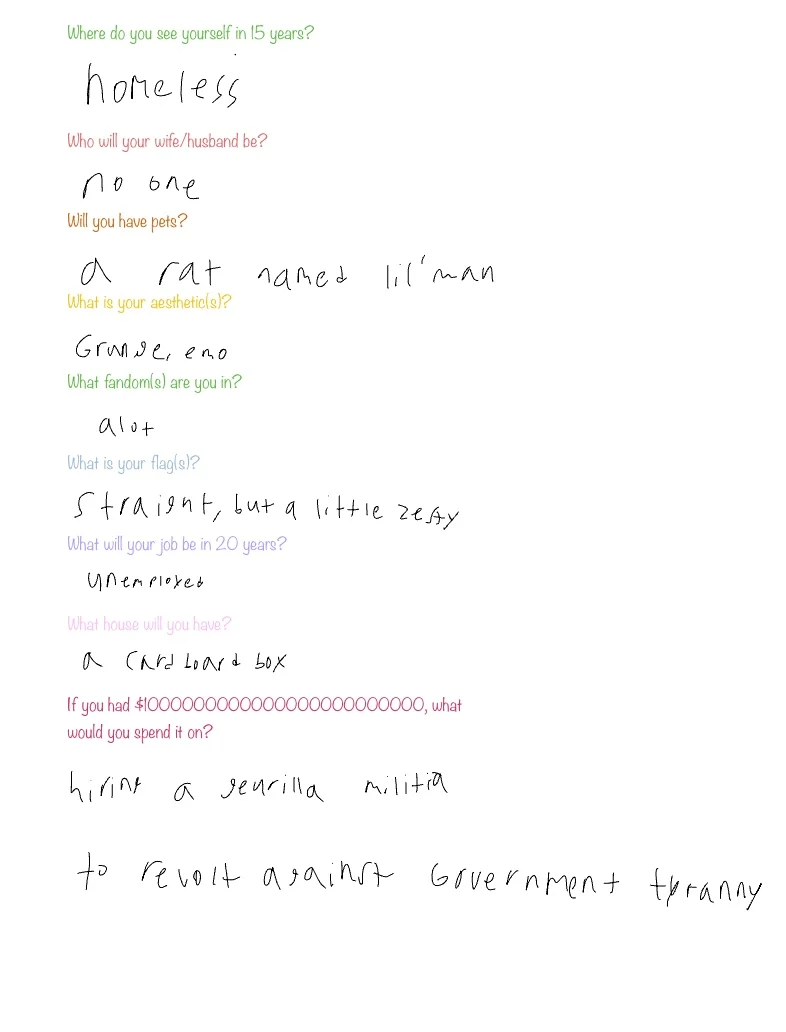 Where do you see yourself in 15 years?
homeless
Who will your wife/husband be?
no one
Will you have pets?
a rat named lil'man
What is your aesthetic(s)?
Grunge, emo
What fandom(s) are you in?
alot
What is your flag(s)?
straight, but a little zesty
What will your job be in 20 years?
unemployed
What house will you have?
a cardboard box
If you had $1000000000000000000000000, what
would you spend it on?
hiring a geurilla militia
to revolt against Government tyranny